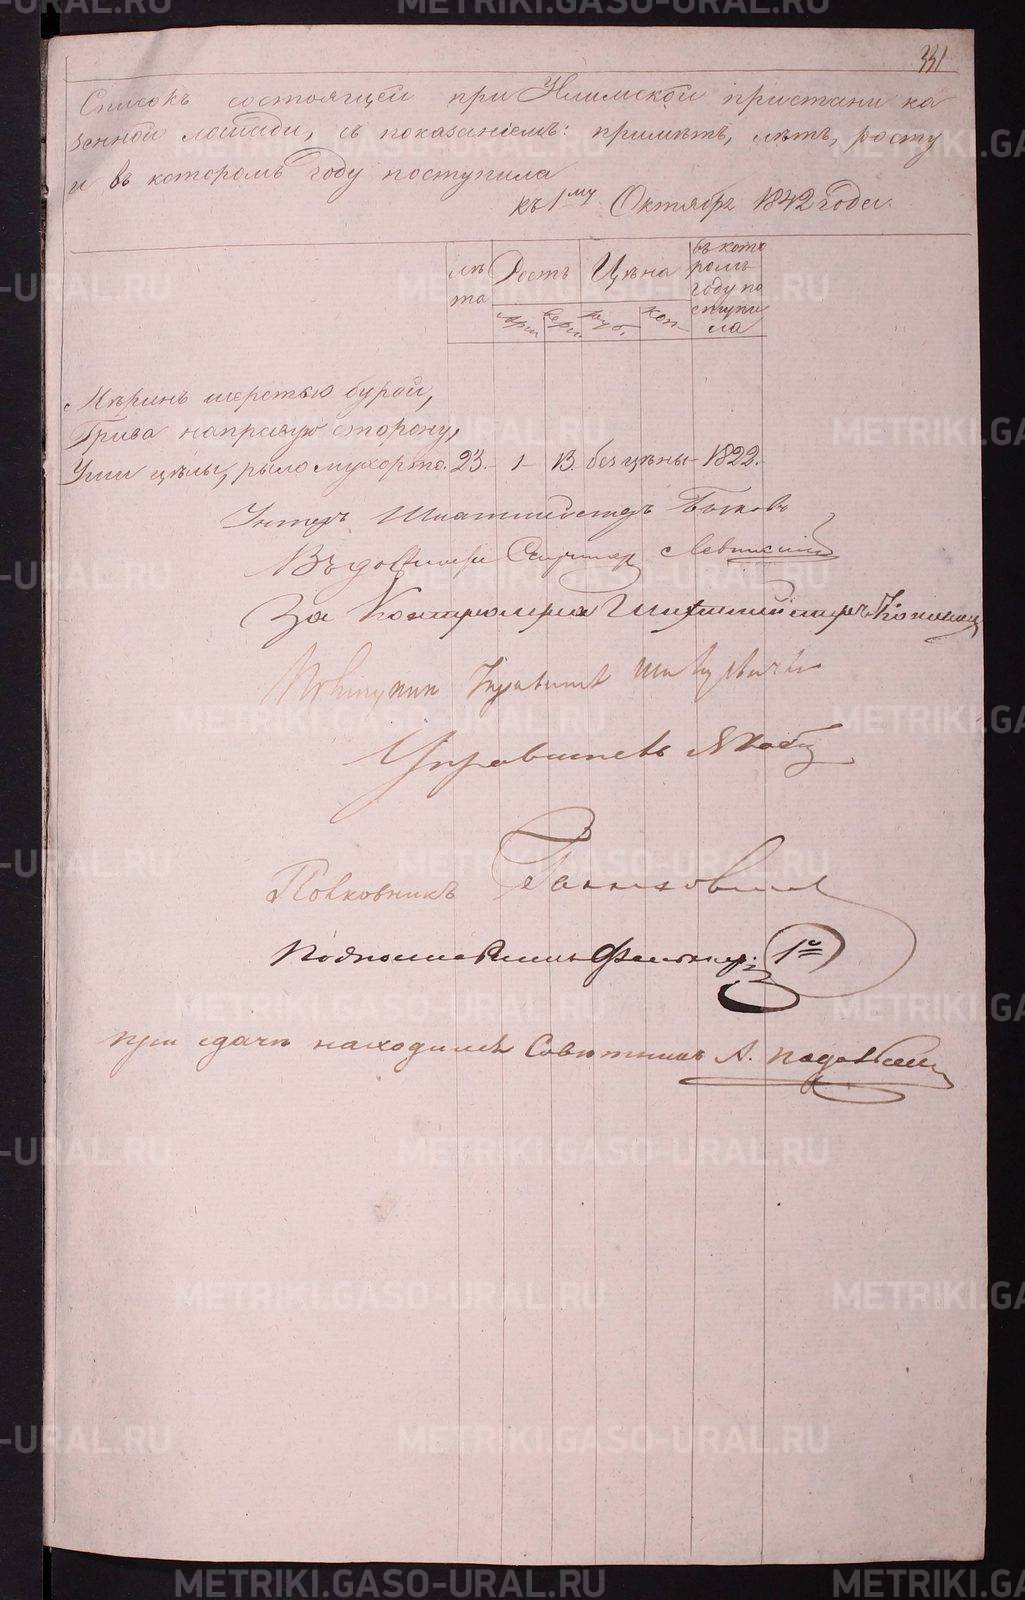 331
Списокъ состоящей при Илимской пристани ка
зенной лошади, съ показаніемъ: приметъ, летъ, росту
и въ которомъ году поступила
къ 1му Октября 1842 года.
ле
та
Ростъ
Цена
въ кото
ромъ
году по
ступи
ла
Арш.
верш.
руб.
коп.
Меринъ шерстью бурой,
Грива направую сторону,
Уши целы, рыло мухорто. 23. - 1 - 13. без цены - 1822.
Унтеръ Шихтмейстеръ Быковъ
За Контролера Шихтмейстеръ
Управитель
Управитель Якоби
Полковникъ
при сдаче находился Советникъ А.
METRIKI.GASO-URAL.RU